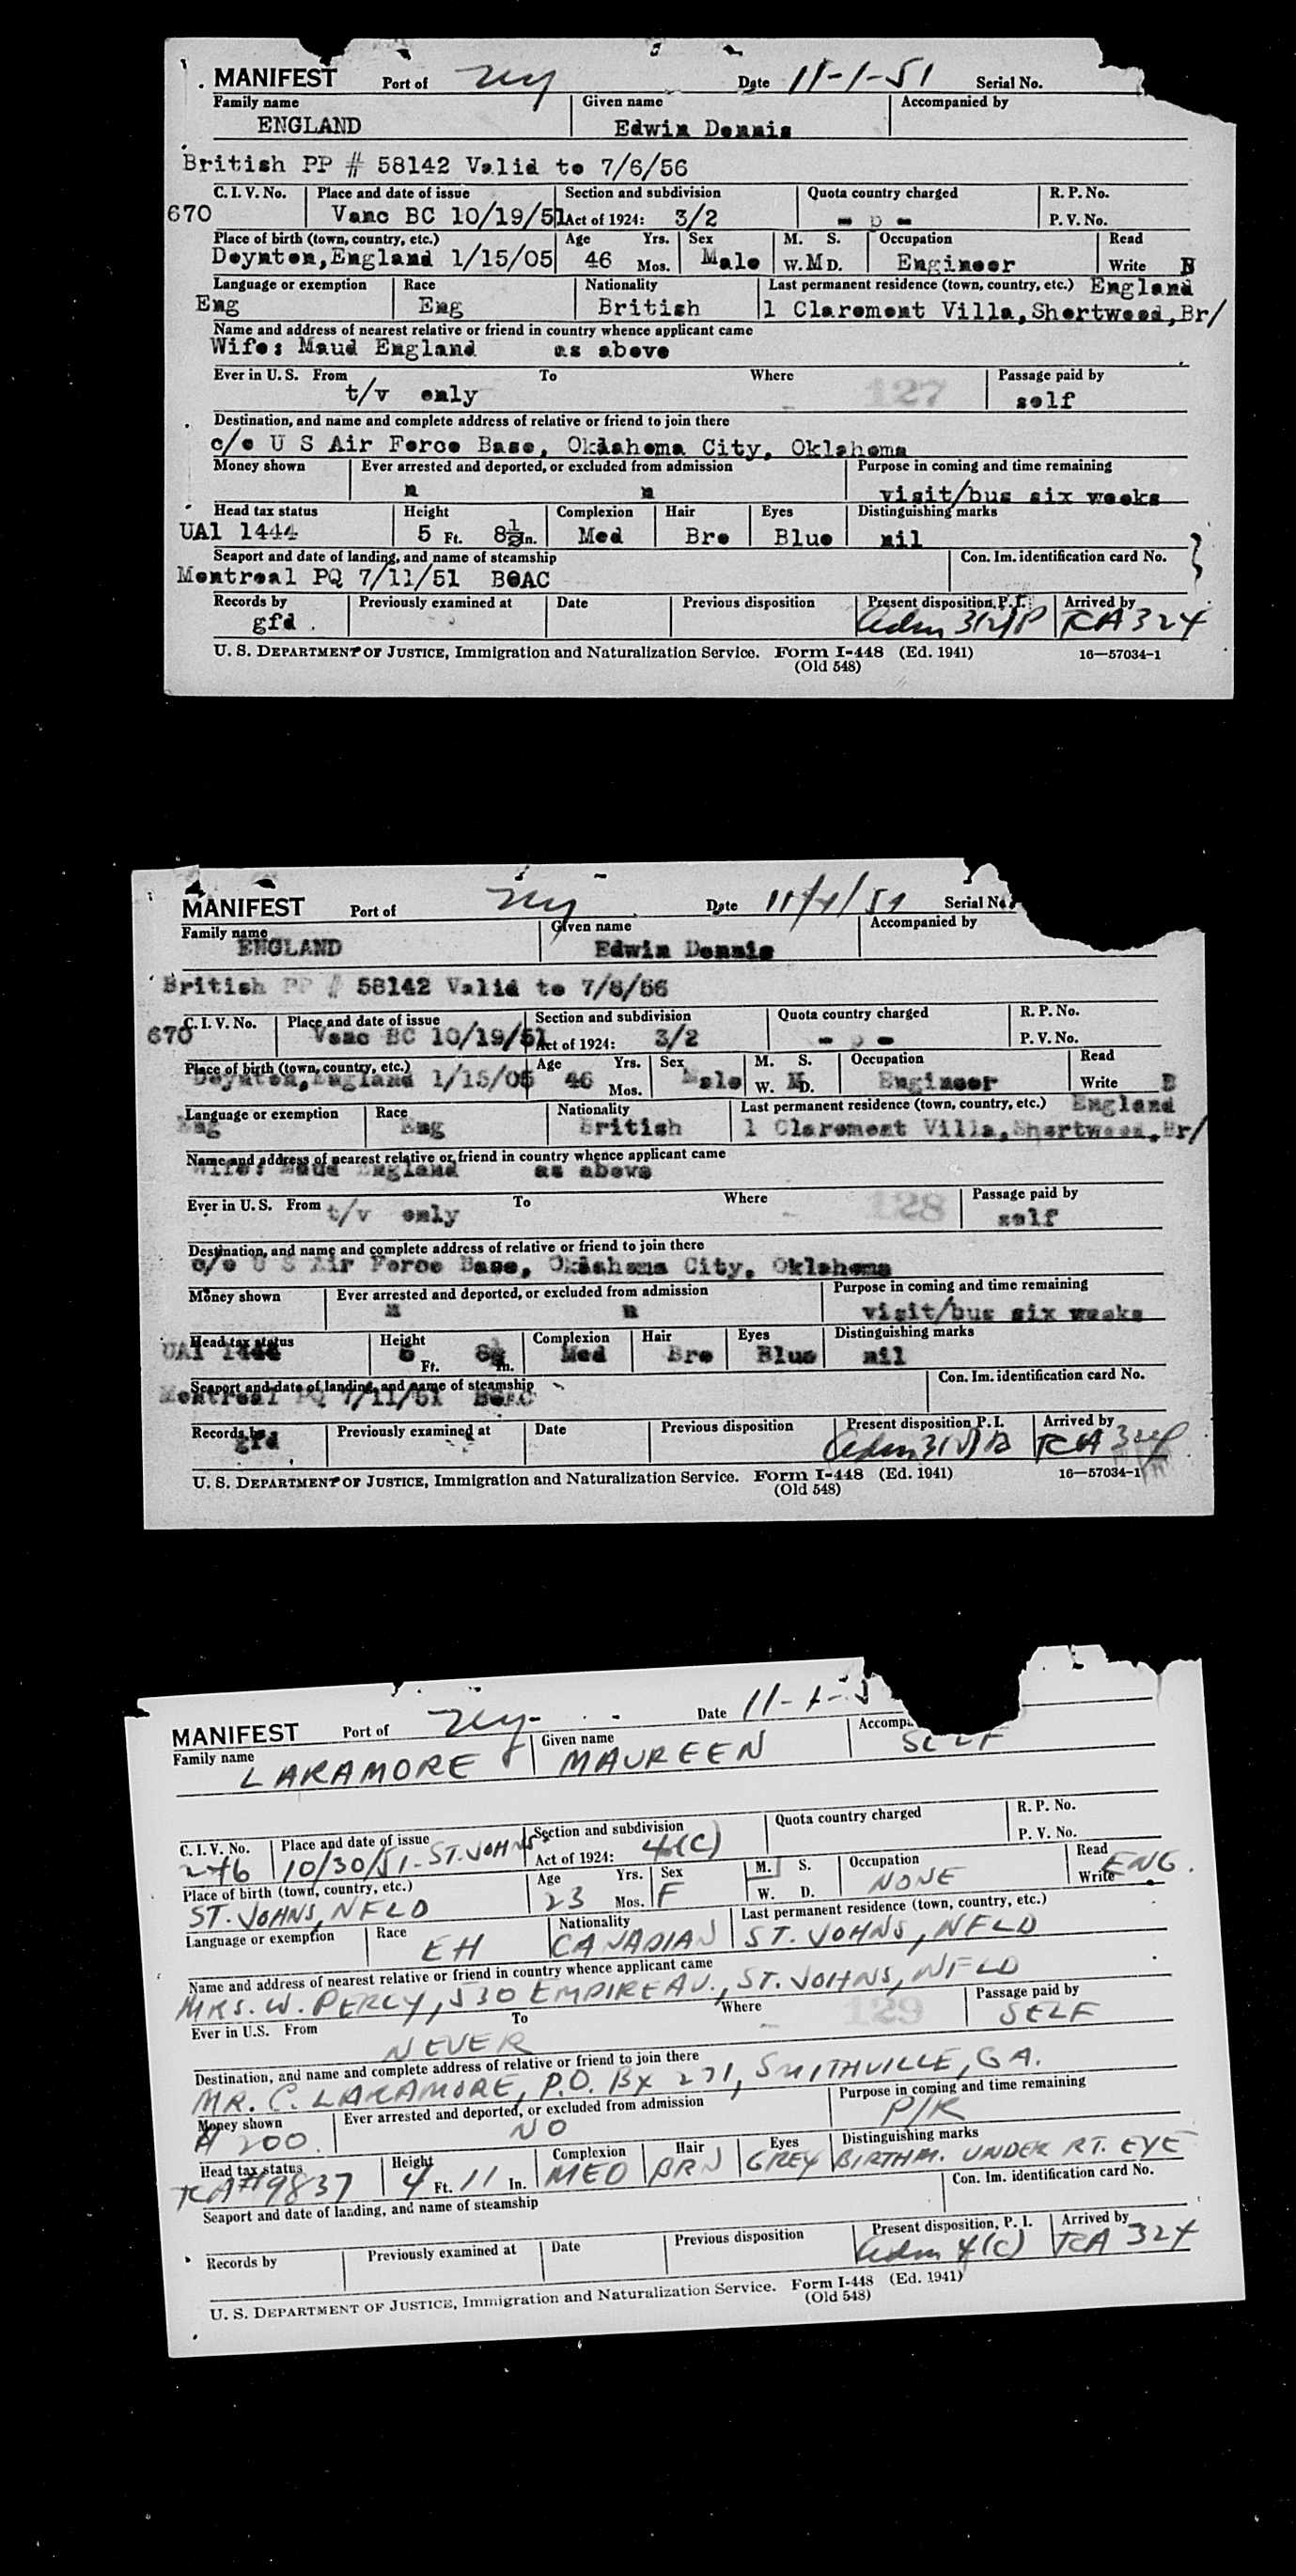 MANIFEST Port of ny Date 11-1-51 Serial No.
Family name Given name Accompanied by
ENGLAND Edwin Dennis
British PP # 58142 Valid to 7/6/56
C. I. V. No. Place and date of issue Section and subdivision Quota country charged R. P. No.
670 Vanc BC 10/19/51 Act of 1924: 3/2 - o - P. V. No.
Place of birth (town, country, etc.) Age Yrs. Sex M. S. Occupation Read
Doynton, England 1/15/05 46 Mos. Male W. M D. Engineer Write B
Language or exemption Race Nationality Last permanent residence (town, country, etc.) England
Eng Eng British 1 Claremont Villa, Shortwood, Br/
Name and address of nearest relative or friend in country whence applicant came
Wife: Maud England as above
Ever in U. S. From To Where 127 Passage paid by
t/v only self
Destination, and name and complete address of relative or friend to join there
c/o U S Air Force Base, Oklahoma City, Oklahoma
Money shown Ever arrested and deported, or excluded from admission Purpose in coming and time remaining
n n visit/bus six weeks
Head tax status Height Complexion Hair Eyes Distinguishing marks
UA1 1444 5 Ft. 8½ In. Med Bro Blue nil
Seaport and date of landing, and name of steamship Con. Im. identification card No.
Montreal PQ 7/11/51 BOAC
Records by Previously examined at Date Previous disposition Present disposition, P. I. Arrived by
gfd Adm 3(2) TCA 324
U. S. DEPARTMENT OF JUSTICE, Immigration and Naturalization Service. Form I-448 (Ed. 1941) 16—57034-1
(Old 548)
MANIFEST Port of ny Date 11/1/51 Serial No.
Family name Given name Accompanied by
ENGLAND Edwin Dennis
British PP # 58142 Valid to 7/6/56
C. I. V. No. Place and date of issue Section and subdivision Quota country charged R. P. No.
670 Vanc BC 10/19/51 Act of 1924: 3/2 - o - P. V. No.
Place of birth (town, country, etc.) Age Yrs. Sex M. S. Occupation Read
Doynton, England 1/15/05 46 Mos. Male W. M D. Engineer Write B
Language or exemption Race Nationality Last permanent residence (town, country, etc.) England
Eng Eng British 1 Claremont Villa, Shortwood, Br/
Name and address of nearest relative or friend in country whence applicant came
Wife: Maud England as above
Ever in U. S. From To Where 128 Passage paid by
t/v only self
Destination, and name and complete address of relative or friend to join there
c/o U S Air Force Base, Oklahoma City, Oklahoma
Money shown Ever arrested and deported, or excluded from admission Purpose in coming and time remaining
n n visit/bus six weeks
Head tax status Height Complexion Hair Eyes Distinguishing marks
UA1 1444 5 Ft. 8½ In. Med Bro Blue nil
Seaport and date of landing, and name of steamship Con. Im. identification card No.
Montreal PQ 7/11/51 BOAC
Records by Previously examined at Date Previous disposition Present disposition P. I. Arrived by
gfd Adm 3(2) TCA 324
U. S. DEPARTMENT OF JUSTICE, Immigration and Naturalization Service. Form I-448 (Ed. 1941) 16—57034-1
(Old 548)
MANIFEST Port of ny Date 11-1-5
Family name Given name Accomp
LARAMORE MAUREEN SELF
C. I. V. No. Place and date of issue Section and subdivision Quota country charged R. P. No.
276 10/30/51 - ST. JOHNS Act of 1924: 4(C) P. V. No.
Place of birth (town, country, etc.) Age Yrs. Sex M. S. Occupation Read
ST. JOHNS, NFLD 23 Mos. F W. D. NONE Write ENG.
Language or exemption Race Nationality Last permanent residence (town, country, etc.)
EH CANADIAN ST. JOHNS, NFLD
Name and address of nearest relative or friend in country whence applicant came
MRS. W. PERCY, 530 EMPIRE AV., ST. JOHNS, NFLD
Ever in U.S. From To Where 129 Passage paid by
NEVER SELF
Destination, and name and complete address of relative or friend to join there
MR. C. LARAMORE, P.O. BX 271, SMITHVILLE, GA.
Money shown Ever arrested and deported, or excluded from admission Purpose in coming and time remaining
200 NO P/R
Head tax status Height Complexion Hair Eyes Distinguishing marks
TCA#9837 4 Ft. 11 In. MED BRN GREY BIRTHM. UNDER RT. EYE
Seaport and date of landing, and name of steamship Con. Im. identification card No.
Records by Previously examined at Date Previous disposition Present disposition, P. I. Arrived by
Adm 4(C) TCA 324
U. S. DEPARTMENT OF JUSTICE, Immigration and Naturalization Service. Form I-448 (Ed. 1941)
(Old 548)